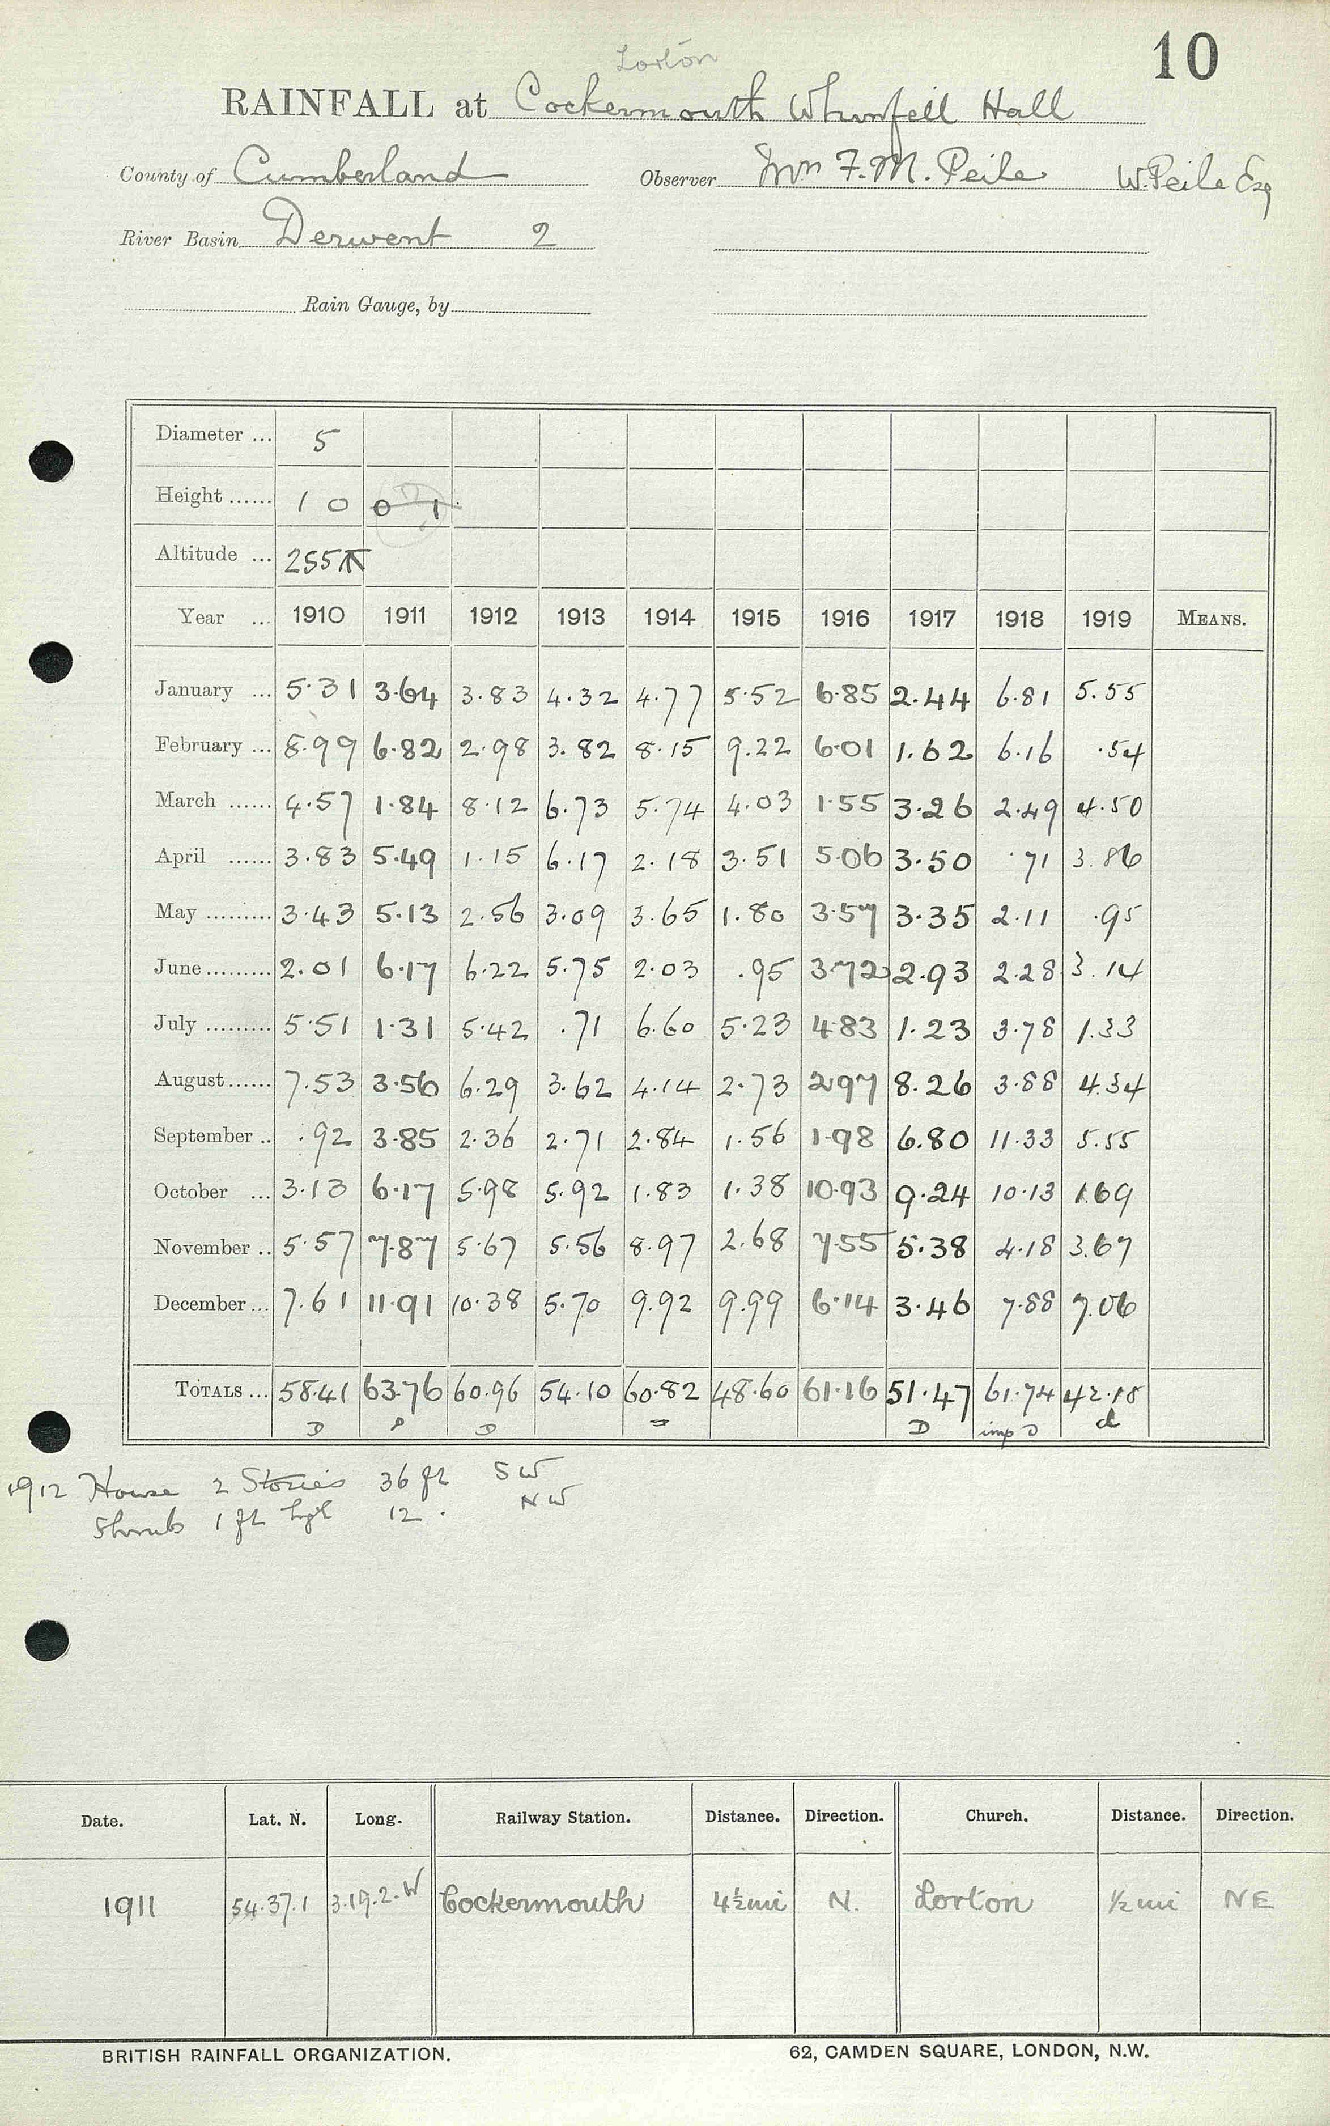 10
Lorton
RAINFALL at Cockermouth Whinfell Hall
County of Cumberland Observer F. M. Peile W. Peile Esq
River Basin Derwent 2
Rain Gauge, by
Diameter ... 5
Height ...... 1 0 0 1
Altitude ... 255
Year ... 1910 1911 1912 1913 1914 1915 1916 1917 1918 1919 MEANS.
January ... 5.31 3.64 3.83 4.32 4.77 5.52 6.85 2.44 6.81 5.55
February ... 8.99 6.82 2.98 3.82 8.15 9.22 6.01 1.62 6.16 .54
March ...... 4.57 1.84 8.12 6.73 5.74 4.03 1.55 3.26 2.49 4.50
April ...... 3.83 5.49 1.15 6.17 2.18 3.51 5.06 3.50 .71 3.86
May ......... 3.43 5.13 2.56 3.09 3.65 1.80 3.57 3.35 2.11 .95
June ......... 2.01 6.17 6.22 5.75 2.03 .95 3.72 2.93 2.28 3.14
July ......... 5.51 1.31 5.42 .71 6.60 5.23 4.83 1.23 3.78 1.33
August ...... 7.53 3.56 6.29 3.62 4.14 2.73 2.97 8.26 3.88 4.34
September .. .92 3.85 2.36 2.71 2.84 1.56 1.98 6.80 11.33 5.55
October ... 3.13 6.17 5.98 5.92 1.83 1.38 10.93 9.24 10.13 1.69
November .. 5.57 7.87 5.67 5.56 8.97 2.68 7.55 5.38 4.18 3.67
December ... 7.61 11.91 10.38 5.70 9.92 9.99 6.14 3.46 7.88 7.06
TOTALS ... 58.41 63.76 60.96 54.10 60.82 48.60 61.16 51.47 61.74 42.18
D D D D imp D d
1912 House 2 Stories 36 ft SW
Shrubs 1 ft hgh 12 . NW
Date. Lat. N. Long. Railway Station. Distance. Direction. Church. Distance. Direction.
1911 54.37.1 3.19.2.W Cockermouth 4½mi N. Lorton ½mi NE
BRITISH RAINFALL ORGANIZATION. 62, CAMDEN SQUARE, LONDON, N.W.